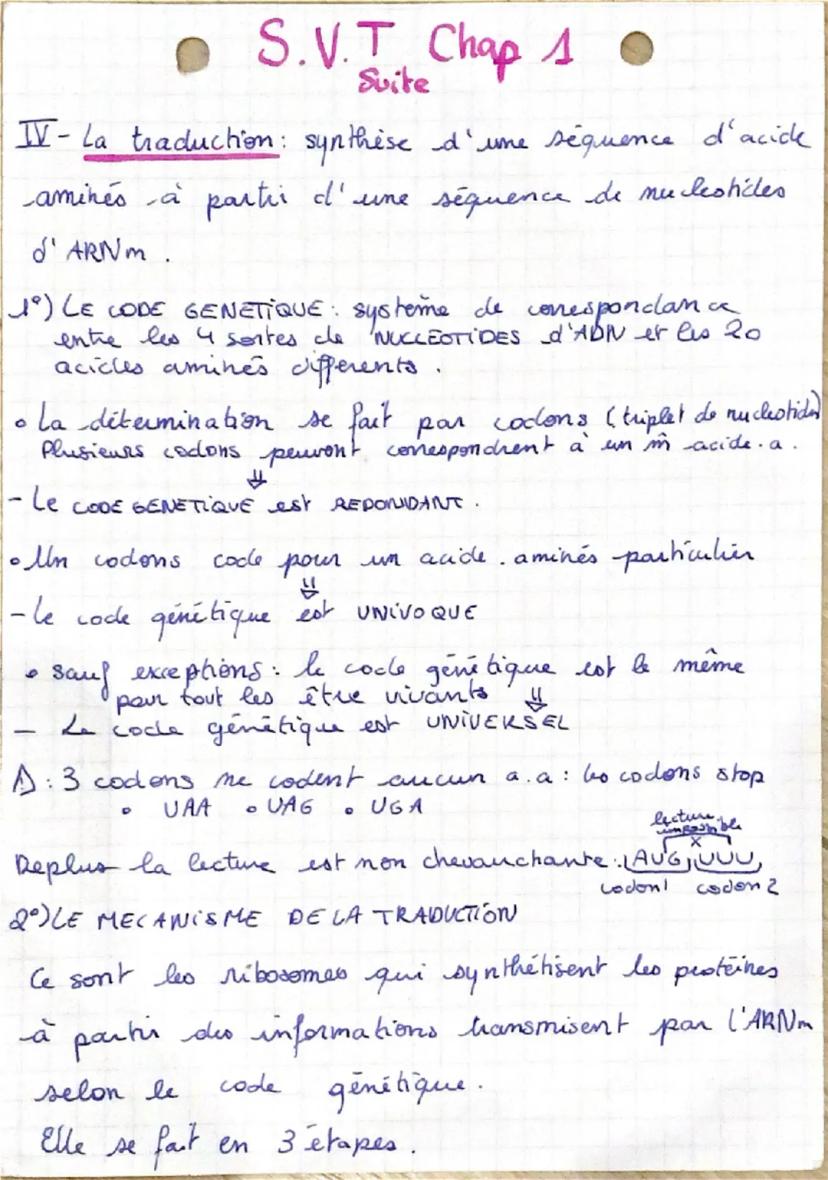 S.V.T Chap 1
Suite
IV- La traduction : synthèse d'une séquence d'acide
aminés à partir d'une séquence de nucléotides
d'ARNm .
1°) LE CODE GENETIQUE : système de correspondance
entre les 4 sortes de NUCLÉOTIDES d'ADN et les 20
acides aminés différents .
• La détermination se fait par codons (triplet de nucléotides)
Plusieurs codons peuvent correspondrent à un m̂ acide.a .
⇓
- Le CODE GENETIQUE est REDONDANT .
• Un codons code pour un acide . aminés particulier
⇓
- le code génétique est UNIVOQUE
• Sauf exceptions : le code génétique est le même
pour tout les être vivants ⇓
- Le code génétique est UNIVERSEL
⚠ : 3 codons ne codent aucun a.a : les codons stop
• UAA • UAG • UGA
lecture
impossible
X
Deplus la lecture est non chevauchante : AUG UUU
codon1 codon2
2°) LE MECANISME DE LA TRADUCTION
Ce sont les ribosomes qui synthétisent les protéines
à partir des informations transmisent par l'ARNm
selon le code génétique .
Elle se fait en 3 étapes .